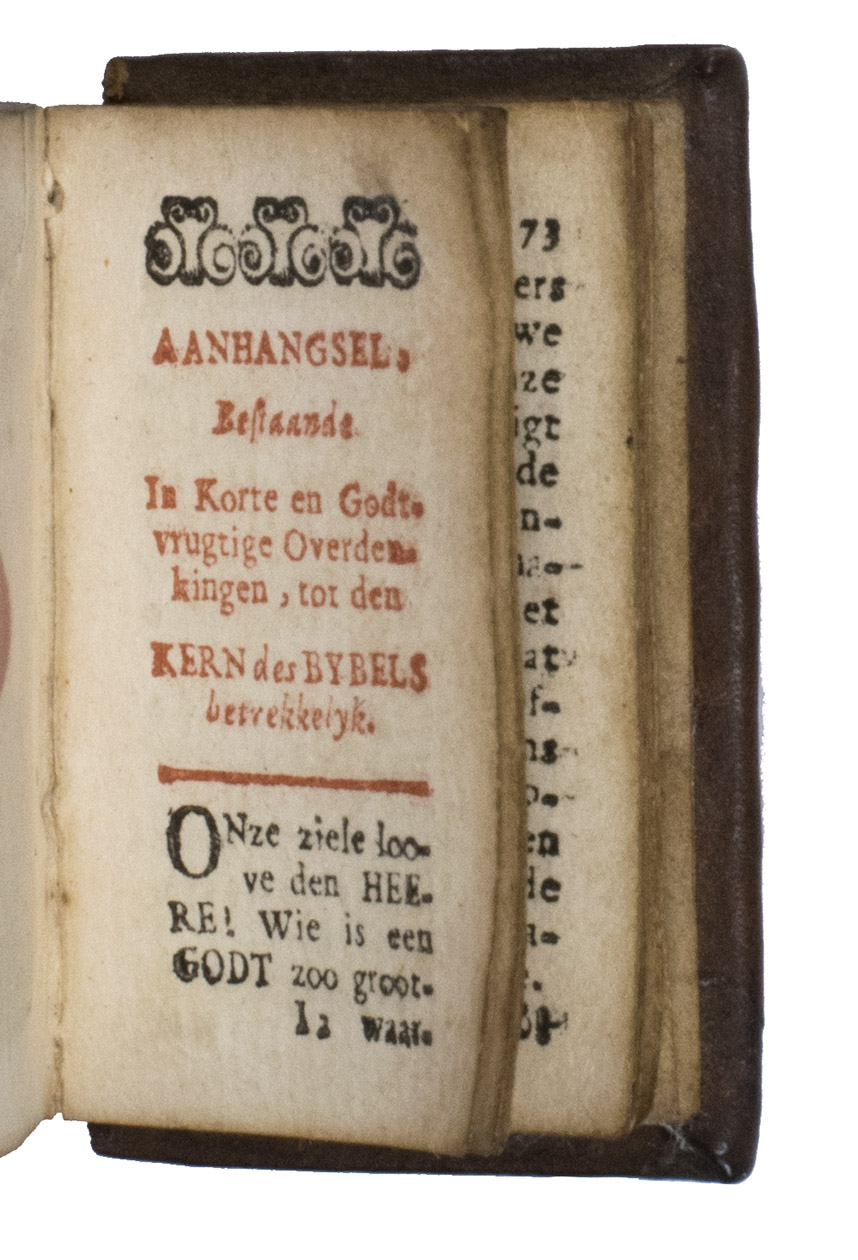 AANHANGSEL,
Beſtaande
In Korte en Godt-
vrugtige Overden-
kingen, tot den
KERN des BYBELS
betrekkelyk.
ONze ziele loo-
ve den HEE-
RE! Wie is een
GODT zoo groot-
I 2 waar-
73
ers
we
ze
igt
de
n-
et
at
f-
ns
en
de